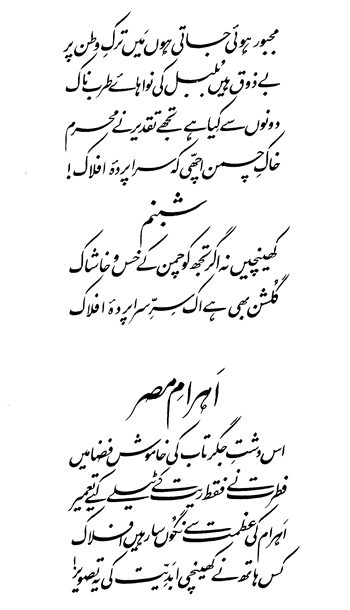 مجبور ہوئی جاتی ہوں مَیں ترکِ وطن پر
بے ذوق ہیں بُلبل کی نوا ہائے طرب ناک
دونوں سے کیا ہے تجھے تقدیر نے محرم
خاکِ چمن اچھّی کہ سراپردۂ افلاک!
شبنم
کھینچیں نہ اگر تجھ کو چمن کے خس و خاشاک
گُلشن بھی ہے اک سِرِّ سراپردۂ افلاک
اَہرامِ مصر
اس دشتِ جگر تاب کی خاموش فضا میں
فطرت نے فقط ریت کے ٹیلے کیے تعمیر
اَہرام کی عظمت سے نگُوں سار ہیں افلاک
کس ہاتھ نے کھینچی اَبدِیّت کی یہ تصویر!